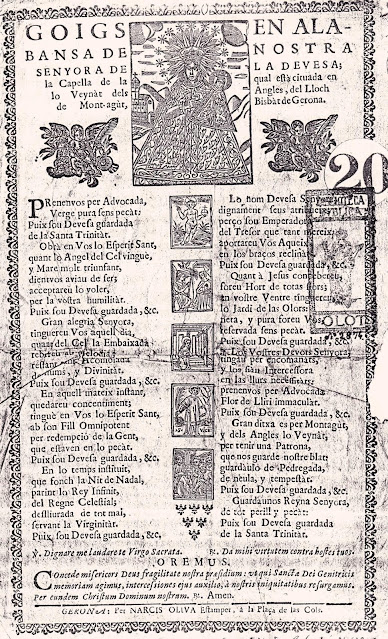 GOIGS EN ALA-
BANSA DE NOSTRA
SENYORA DE LA DEVESA;
la Capella de la qual està cituada en
lo Veynàt dels Angles, del Lloch
de Mont-agùt, Bisbàt de Gerona.
20
PRenenvos per Advocada,
Verge pura sens pecàt:
Puix sou Devesa guardada
de la Santa Trinitàt.
Obrà en Vos lo Esperit Sant,
quant lo Angel del Cel vingué,
y Mare molt triunfant,
dientvos aviau de ser;
acceptareu lo voler,
per la vostra humilitàt.
Puix sou Devesa guardada, &c.
Gran alegria Senyora,
tinguereu Vos aquell dia,
quant del Cel la Embaixada
rebereu
restant
sums, y Divinitàt.
Puix sou Devesa guardada, &c.
En aquell mateix instant,
quedareu concebiment;
tingué en Vos lo Esperit Sant,
ab son Fill Omnipotent
per redempció de la Gent,
que estaven en lo pecàt.
Puix sou Devesa guardada, &c.
En lo temps instituit,
que fonch la Nit de Nadal,
parint lo Rey Infinit,
del Regne Celestial;
desliurada de tot mal,
servant la Virginitàt.
Puix sou Devesa guardada, &c.
Lo nom Devesa Senyora
dignament seus atribuex
perço sou Emperadora
del Tresor que tant mereix;
aportareu Vos Aqueix
en los braços reclinàt
Puix sou Devesa guardada, &c.
Quant à Jesus concebereu,
foreu Hort de totas flors;
en vostre Ventre tinguereu
lo Jardi de las Olors:
y pura foreu Vos
reservada sens pecàt.
Puix sou Devesa guardada, &c.
A Los Vostres Devots Senyora,
tingau per encomanats;
y los siau Intercessora
en las llurs necessitats;
prenenvos per Advocada
Flor de Lliri immaculàt.
Puix sou Devesa guardada, &c.
Gran ditxa es per Montagùt,
y dels Angles lo Veynàt,
per tenir una Patrona,
que nos guarde nostre blat;
guardàulo de Pedregada,
de neula, y tempestàt.
Puix sou Devesa guardada, &c.
Guardàunos Reyna Senyora,
de tot perill y pecàt:
Puix sou Devesa guardada
de la Santa Trinitàt.
OLOT
℣. Dignare me laudare te Virgo Sacrata. ℟. Da mihi virtutem contra hostes tuos.
OREMUS.
Concede misericors Deus fragilitate nostra præsidium: ut qui Sanctæ Dei Genitricis
memoriam agimus, intercessionis ejus auxilio, à nostris iniquitatibus resurgamus.
Per eundem Christum Dominum nostrum. ℟. Amen.
GERONA: Per NARCIS OLIVA Estamper, à la Plaça de las Cols.